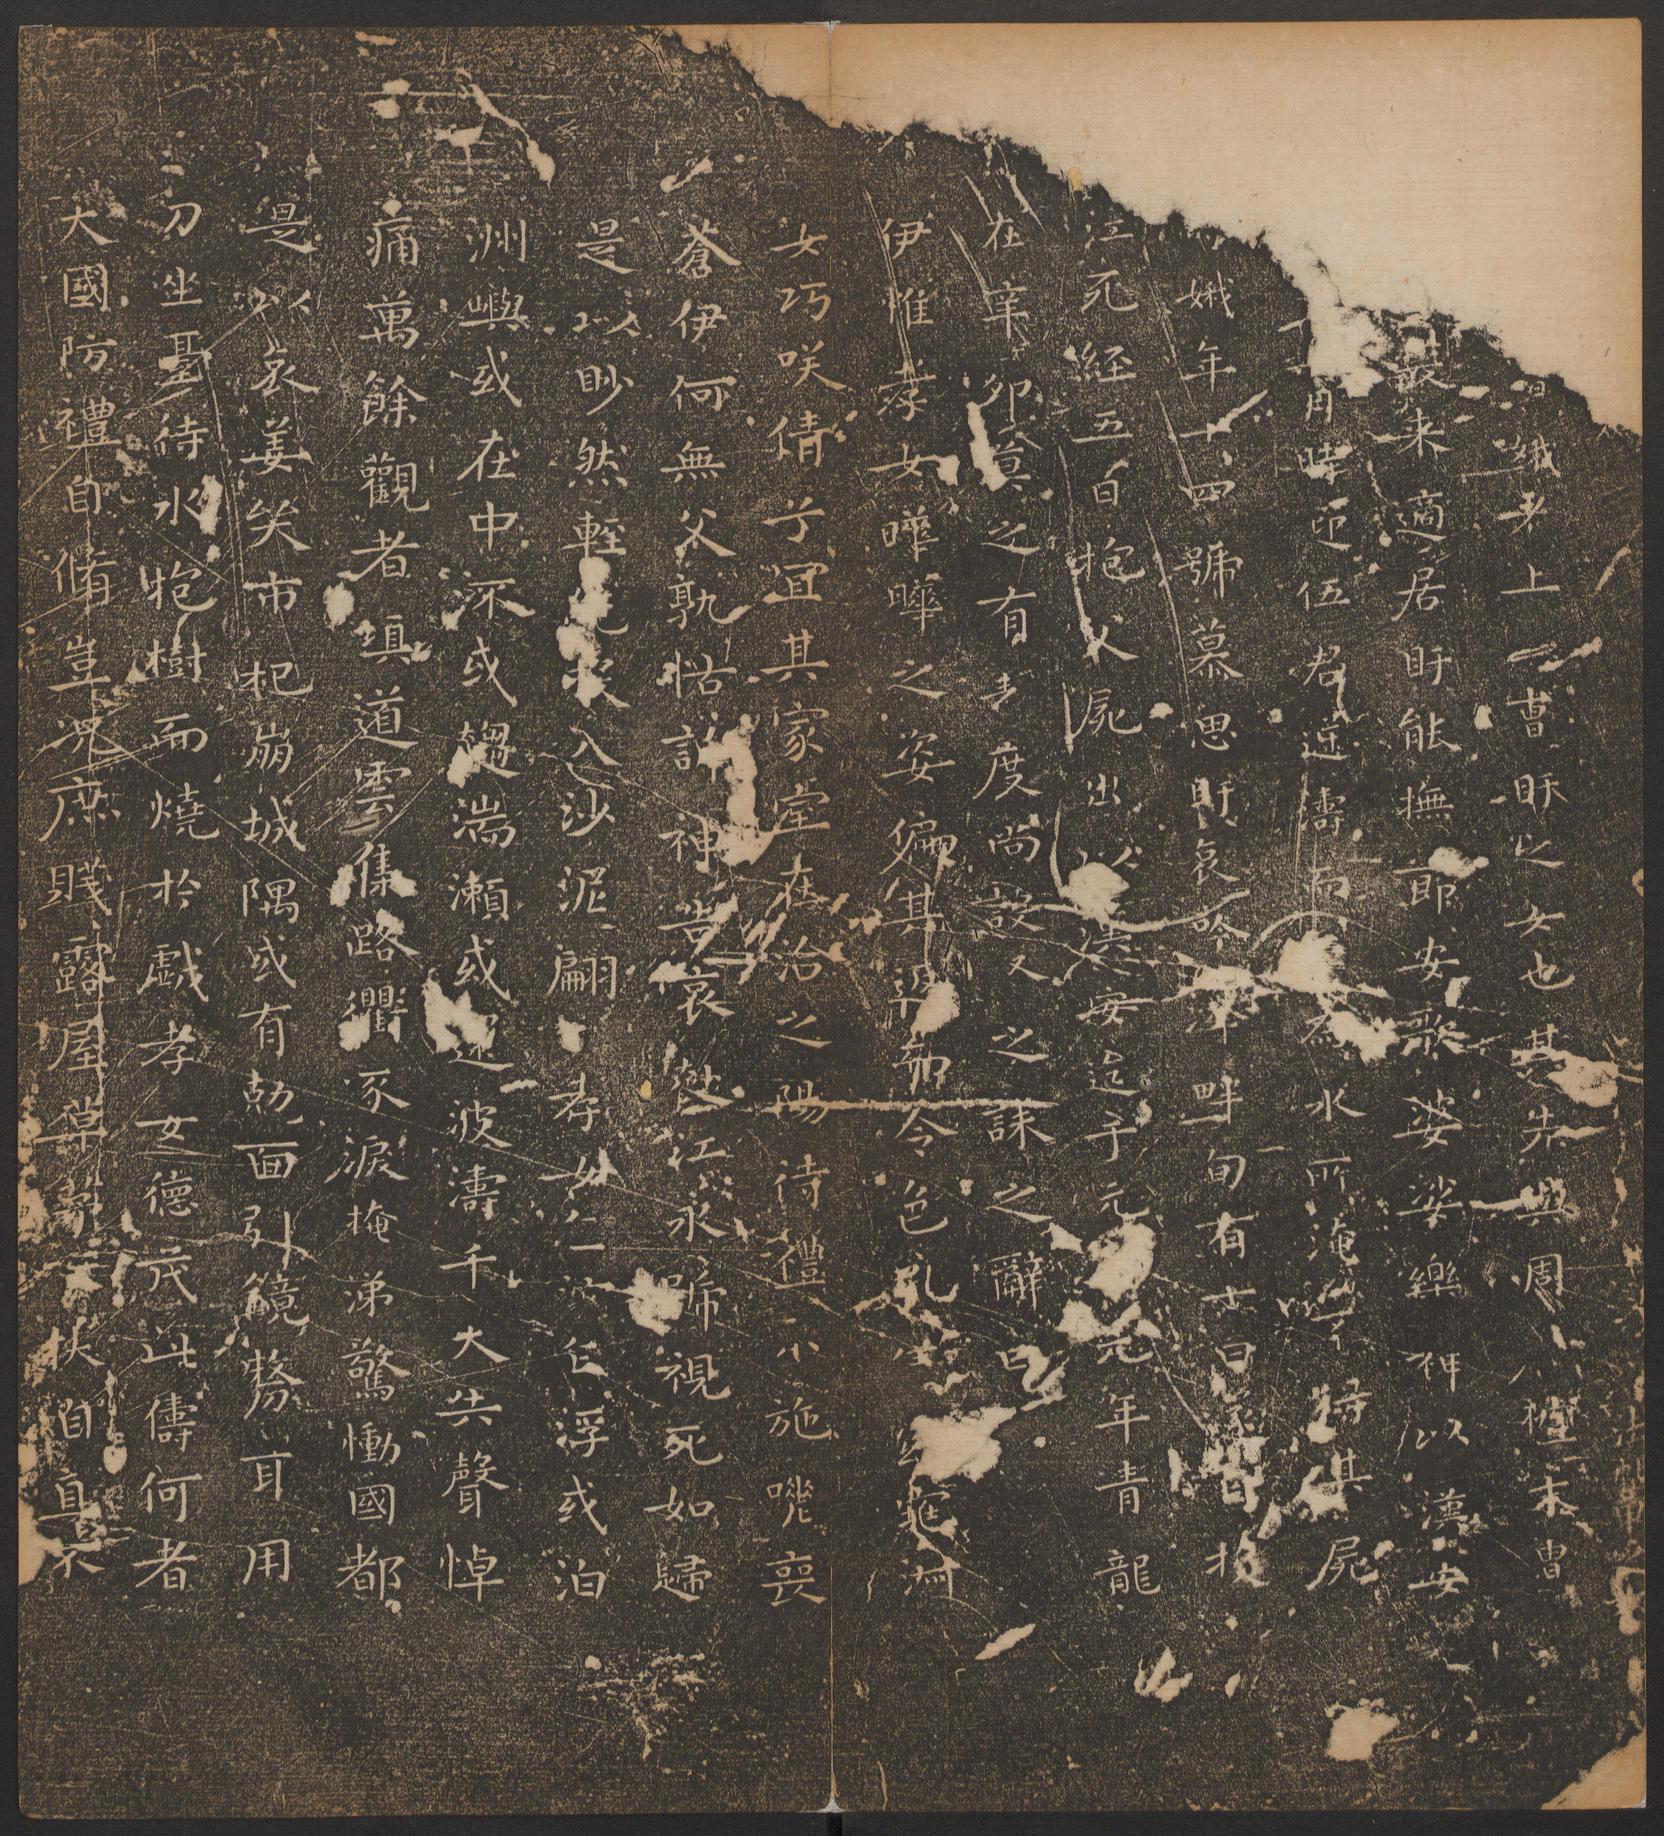 娥者上曹盱之女也其先與周祖末胄
来適居盱能撫節安歌婆娑樂神以漢安
月時迎伍君逆濤而為水所淹不得其屍
娥年十四號慕思盱哀吟澤畔旬有七日遂自投
江死經五日抱父屍出以漢安迄于元嘉元年青龍
在辛卯莫之有表度尚設之誄之辭曰
伊惟孝女曄曄之姿偏其返而令色孔儀窈窕淑
女巧咲倩兮宜其家室在洽之陽待禮未施嗟喪
蒼伊何無父孰怙訴神告哀赴江永號視死如歸
是以眇然輕絕投入沙泥翩孝女乍沉乍浮或泊
洲嶼或在中流或趨湍瀨或還波濤千夫失聲悼
痛萬餘觀者填道雲集路衢流淚掩涕驚慟國都
是以哀姜哭市杞崩城隅或有剋面引鏡剺耳用
刀坐臺待水抱樹而燒於戲孝女德茂此儔何者
大國防禮自脩豈況庶賤露屋草茅不扶自直不